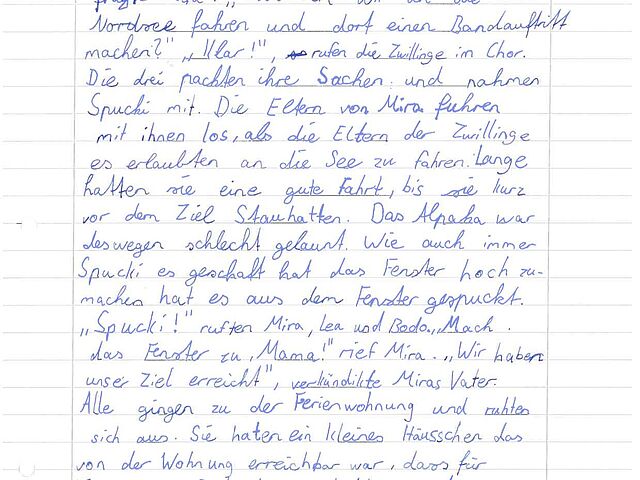 Nordsee fahren und dort einen Bandauftritt
machen?" „Klar!", rufen die Zwillinge im Chor.
Die drei packten ihre Sachen und nahmen
Spucki mit. Die Eltern von Mira fuhren
mit ihnen los, als die Eltern der Zwillinge
es erlaubten an die See zu fahren. Lange
hatten sie eine gute Fahrt, bis sie kurz
vor dem Ziel Stau hatten. Das Alpaka war
deswegen schlecht gelaunt. Wie auch immer
Spucki es geschaft hat das Fenster hoch zu-
machen hat es aus dem Fenster gespuckt.
„Spucki!" ruften Mira, Lea und Bodo. „Mach
das Fenster zu, Mama!" rief Mira. „Wir haben
unser Ziel erreicht", verkündikte Miras Vater.
Alle gingen zu der Ferienwohnung und ruhten
sich aus. Sie haten ein kleines Häusschen das
von der Wohnung erreichbar war, dass für